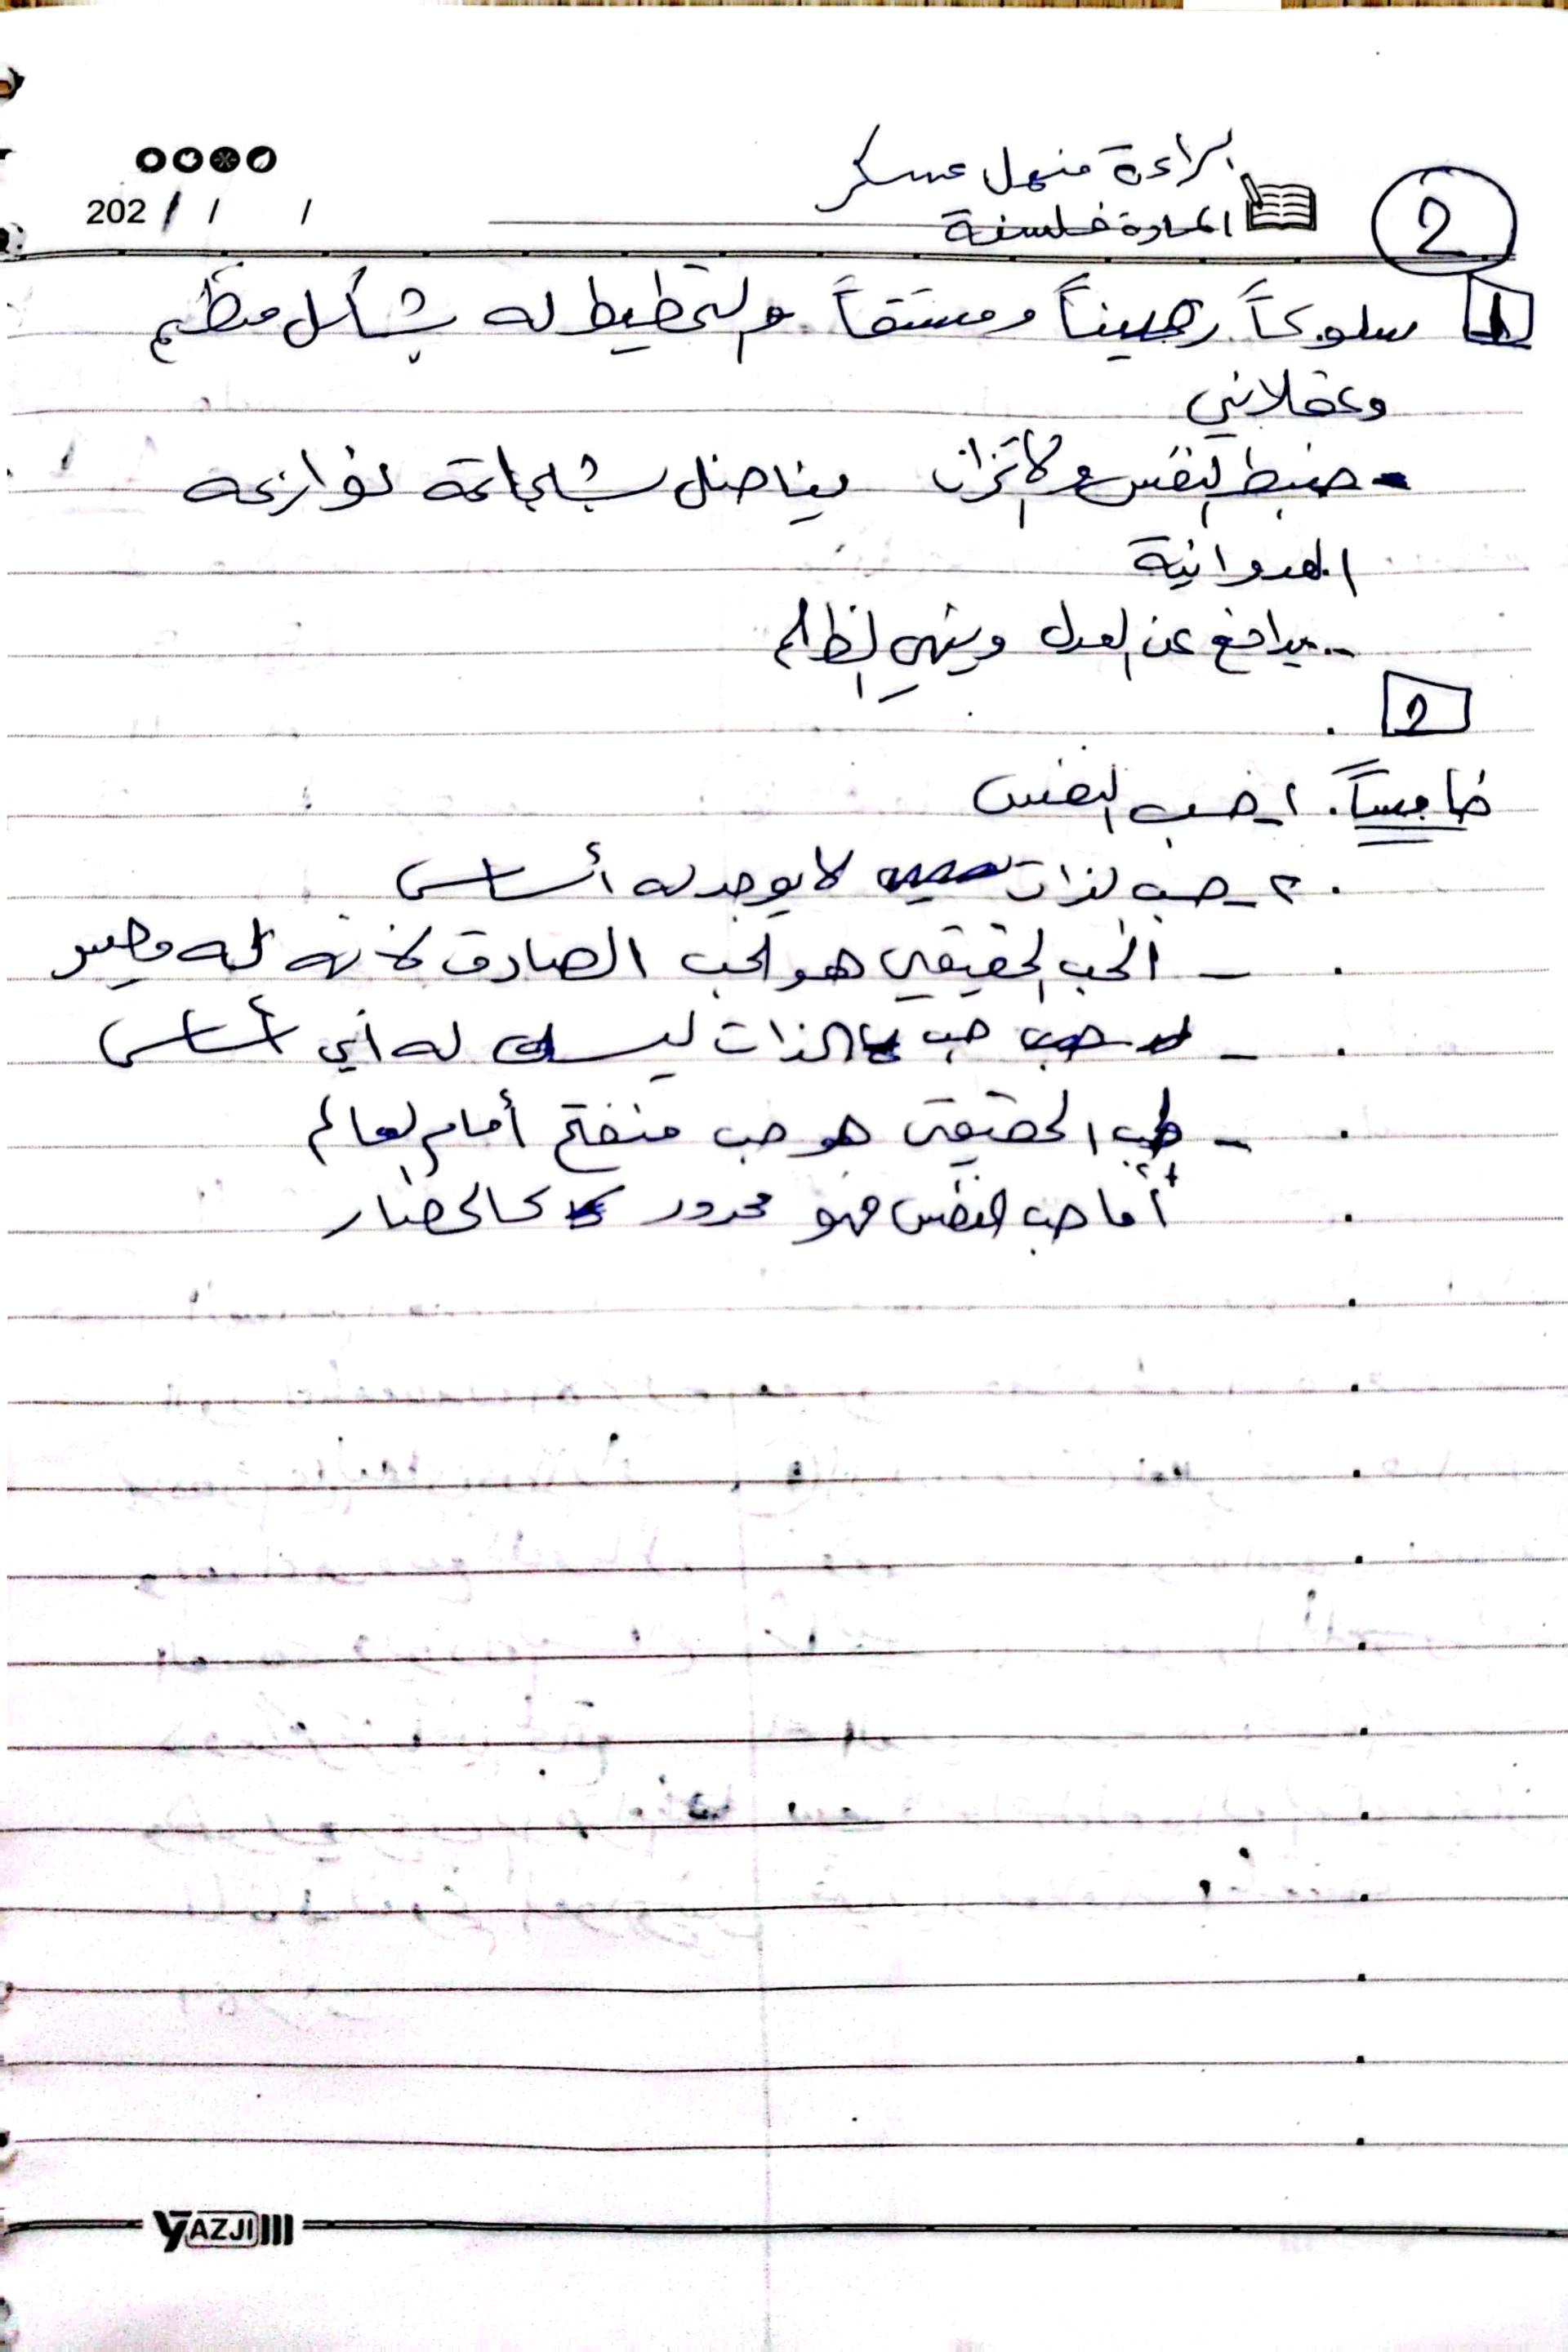 براءة منهل عسكر
المادة فلسفة
2
202 / / /
1 سلوكاً رصيناً ومتسقاً والتخطيط له بشكل منظم
وعقلاني
- ضبط النفس والاتزان يناضل بشجاعة نوازعه
العدوانية
- يدافع عن العدل وينهي الظلم
2
خامساً. 1- حب النفس
2- حب لذات لا يوجد له أساس
- الحب الحقيقي هو الحب الصادق لأنه له
- حب الذات ليس له أي أساس
- الحب الحقيقي هو حب منفتح أمام لعالم
أما حب النفس فهو محدود كالحصار
YAZJI